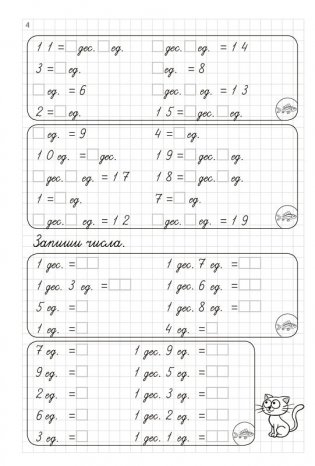 4
11=□дес.□ед. □дес.□ед. =14
3=□ед. □ед. =8
□ед. =6 □дес.□ед. =13
2=□ед. 15=□дес.□ед.
□ед. =9 4=□ед.
10 ед. =□дес. 19=□дес.□ед.
□дес.□ед. =17 18=□дес.□ед.
1=□ед. 7=□ед.
□дес.□ед. =12 □дес.□ед. =19
Запиши числа.
1 дес. =□□ 1 дес. 7 ед. =□□
1 дес. 3 ед. =□□ 1 дес. 6 ед. =□□
5 ед. =□□ 1 дес. 8 ед. =□□
1 ед. =□ 4 ед. =□
7 ед. =□□ 1 дес. 9 ед. =□□
9 ед. =□□ 1 дес. 5 ед. =□□
2 ед. =□□ 1 дес. 3 ед. =□□
6 ед. =□□ 1 дес. 2 ед. =□□
3 ед. =□ 1 дес. 1 ед. =□□